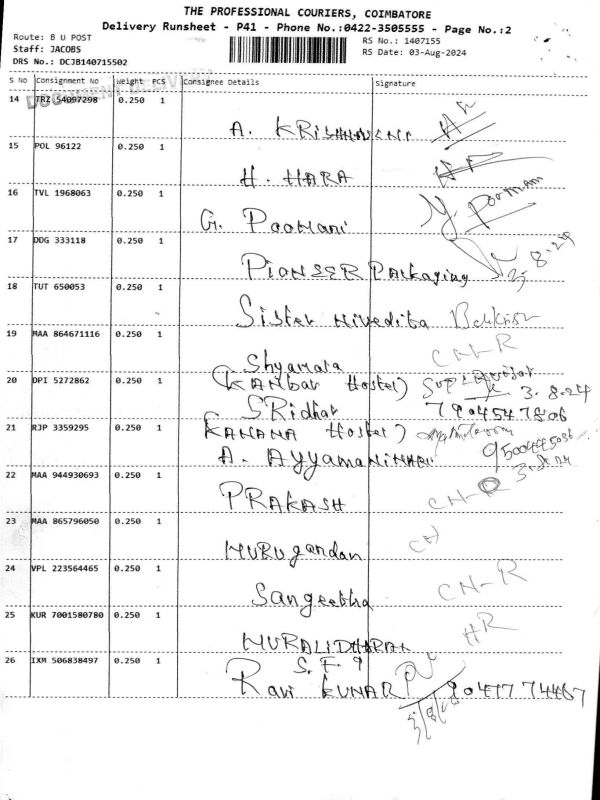 THE PROFESSIONAL COURIERS, COIMBATORE
Delivery Runsheet - P41 - Phone No.:0422-3505555 - Page No.:2
Route: B U POST
RS No.: 1407155
Staff: JACOBS
RS Date: 03-Aug-2024
DRS No.: DCJB140715502
S No Consignment No Weight PCS Consignee Details Signature
14 TRZ 54097298 0.250 1
A.
15 POL 96122 0.250 1
H. HARA
16 TVL 1968063 0.250 1
G. Poomani
17 DDG 333118 0.250 1
PIONSER Packaging
18 TUT 650053 0.250 1
Sister Nivedita
19 MAA 864671116 0.250 1
Shyamala CN-R
20 DPI 5272862 0.250 1
Hostel) 3.8.24
SRidhar
21 RJP 3359295 0.250 1
KANANA Hostel)
A.
22 MAA 944930693 0.250 1
PRAKASH CN-R
23 MAA 865796050 0.250 1
MURUgandan CN
24 VPL 223564465 0.250 1
Sangeetha CN-R
25 KUR 7001580780 0.250 1
MURALIDHARAN HR
26 IXM 506838497 0.250 1
Ravi KUMAR